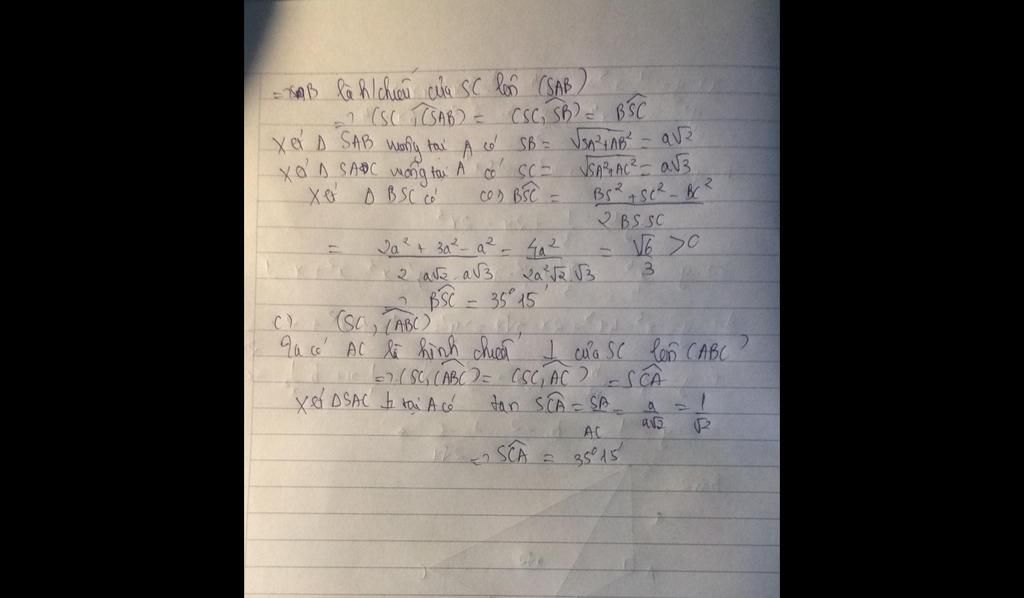 => AB là h/chiếu của SC lên (SAB)
=> (SC, (SAB)) = (SC, SB) = BSC
Xét Δ SAB vuông tại A có SB = √SA²+AB² = a√2
Xét Δ SAC vuông tại A có SC = √SA²+AC² = a√3
Xét Δ BSC có cos BSC = BS² + SC² - BC² / 2 BS SC
= 2a² + 3a² - a² / 2 a√2 . a√3 = 4a² / 2a²√2 √3 = √6 / 3 > 0
=> BSC = 35° 15'
c) (SC, (ABC))
Ta có AC là hình chiếu ⊥ của SC lên (ABC)
=> (SC, (ABC)) = (SC, AC) = SCA
Xét ΔSAC ⊥ tại A có tan SCA = SA / AC = a / a√2 = 1 / √2
=> SCA = 35° 15'